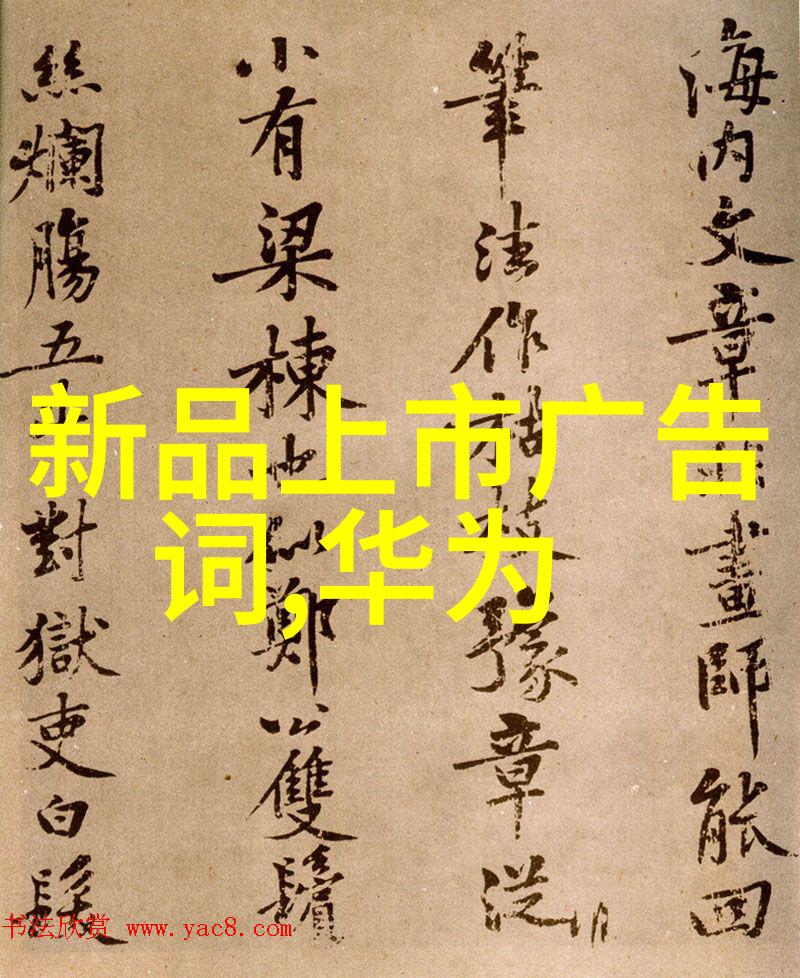 海内文章非畫師能回
筆法作枯枝豫章從
小有梁棟也似鄭公雙鬢
絲爛腸五斗對獄吏白髮
新品上市广告
词,华为
书法欣赏 www.yac8.com